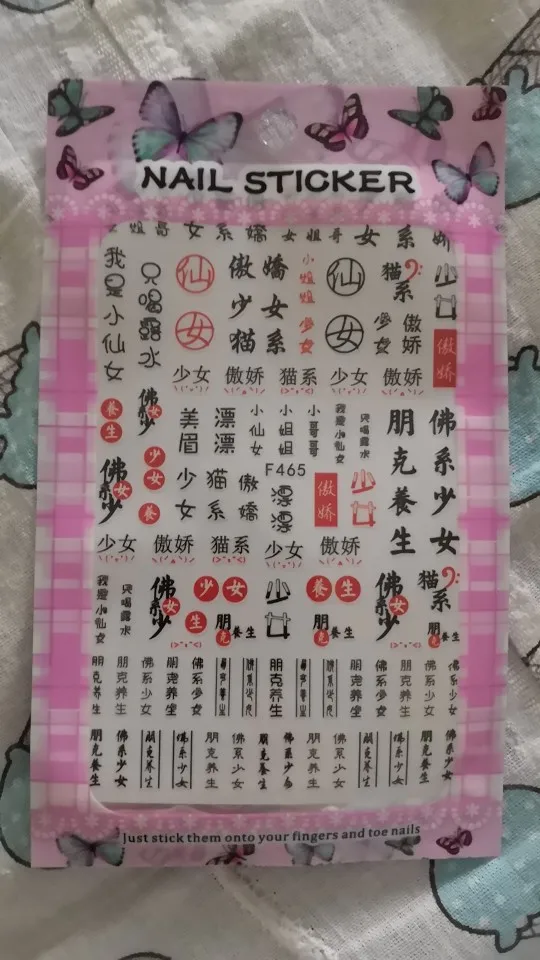 NAIL STICKER
姐 哥 女 系 嬌 女 姐 哥 女 系 娇
我是小仙女
只喝露水
仙女
傲嬌
少女
猫系
小姐姐
少女
仙女
猫系
少女
傲娇
少女
傲娇
少女 傲娇 猫系 少女 傲娇
養生
佛系少女
美眉
漂漂
小仙女
小姐姐
小哥哥
我是小仙女
只喝露水
朋克養生
佛系少女
佛系少女
少女
養
少女
猫系
傲嬌
F465
漂漂
傲娇
少女
少女 傲娇 猫系 少女 傲娇
我是小仙女
只喝露水
佛系少女
少女
生
朋克養生
少女
養生
朋克養生
佛系少女
猫系
朋克養生
朋克养生 朋克养生 佛系少女 朋克养生 佛系少女 朋克养生 佛系少女 朋克养生 佛系少女
朋克养生 佛系少女 朋克养生 佛系少女 朋克养生 佛系少女 朋克養生 佛系少女 朋克养生 佛系少女 朋克养生 佛系少女 朋克養生 佛系少女
Just stick them onto your fingers and toe nails